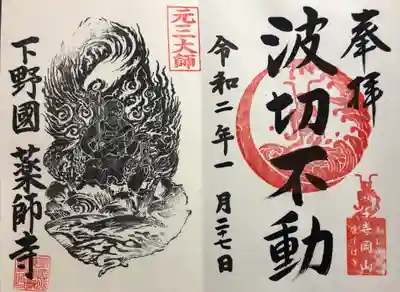 奉拝
波切不動
令和二年一月二十七日
元三大師
下野國 薬師寺